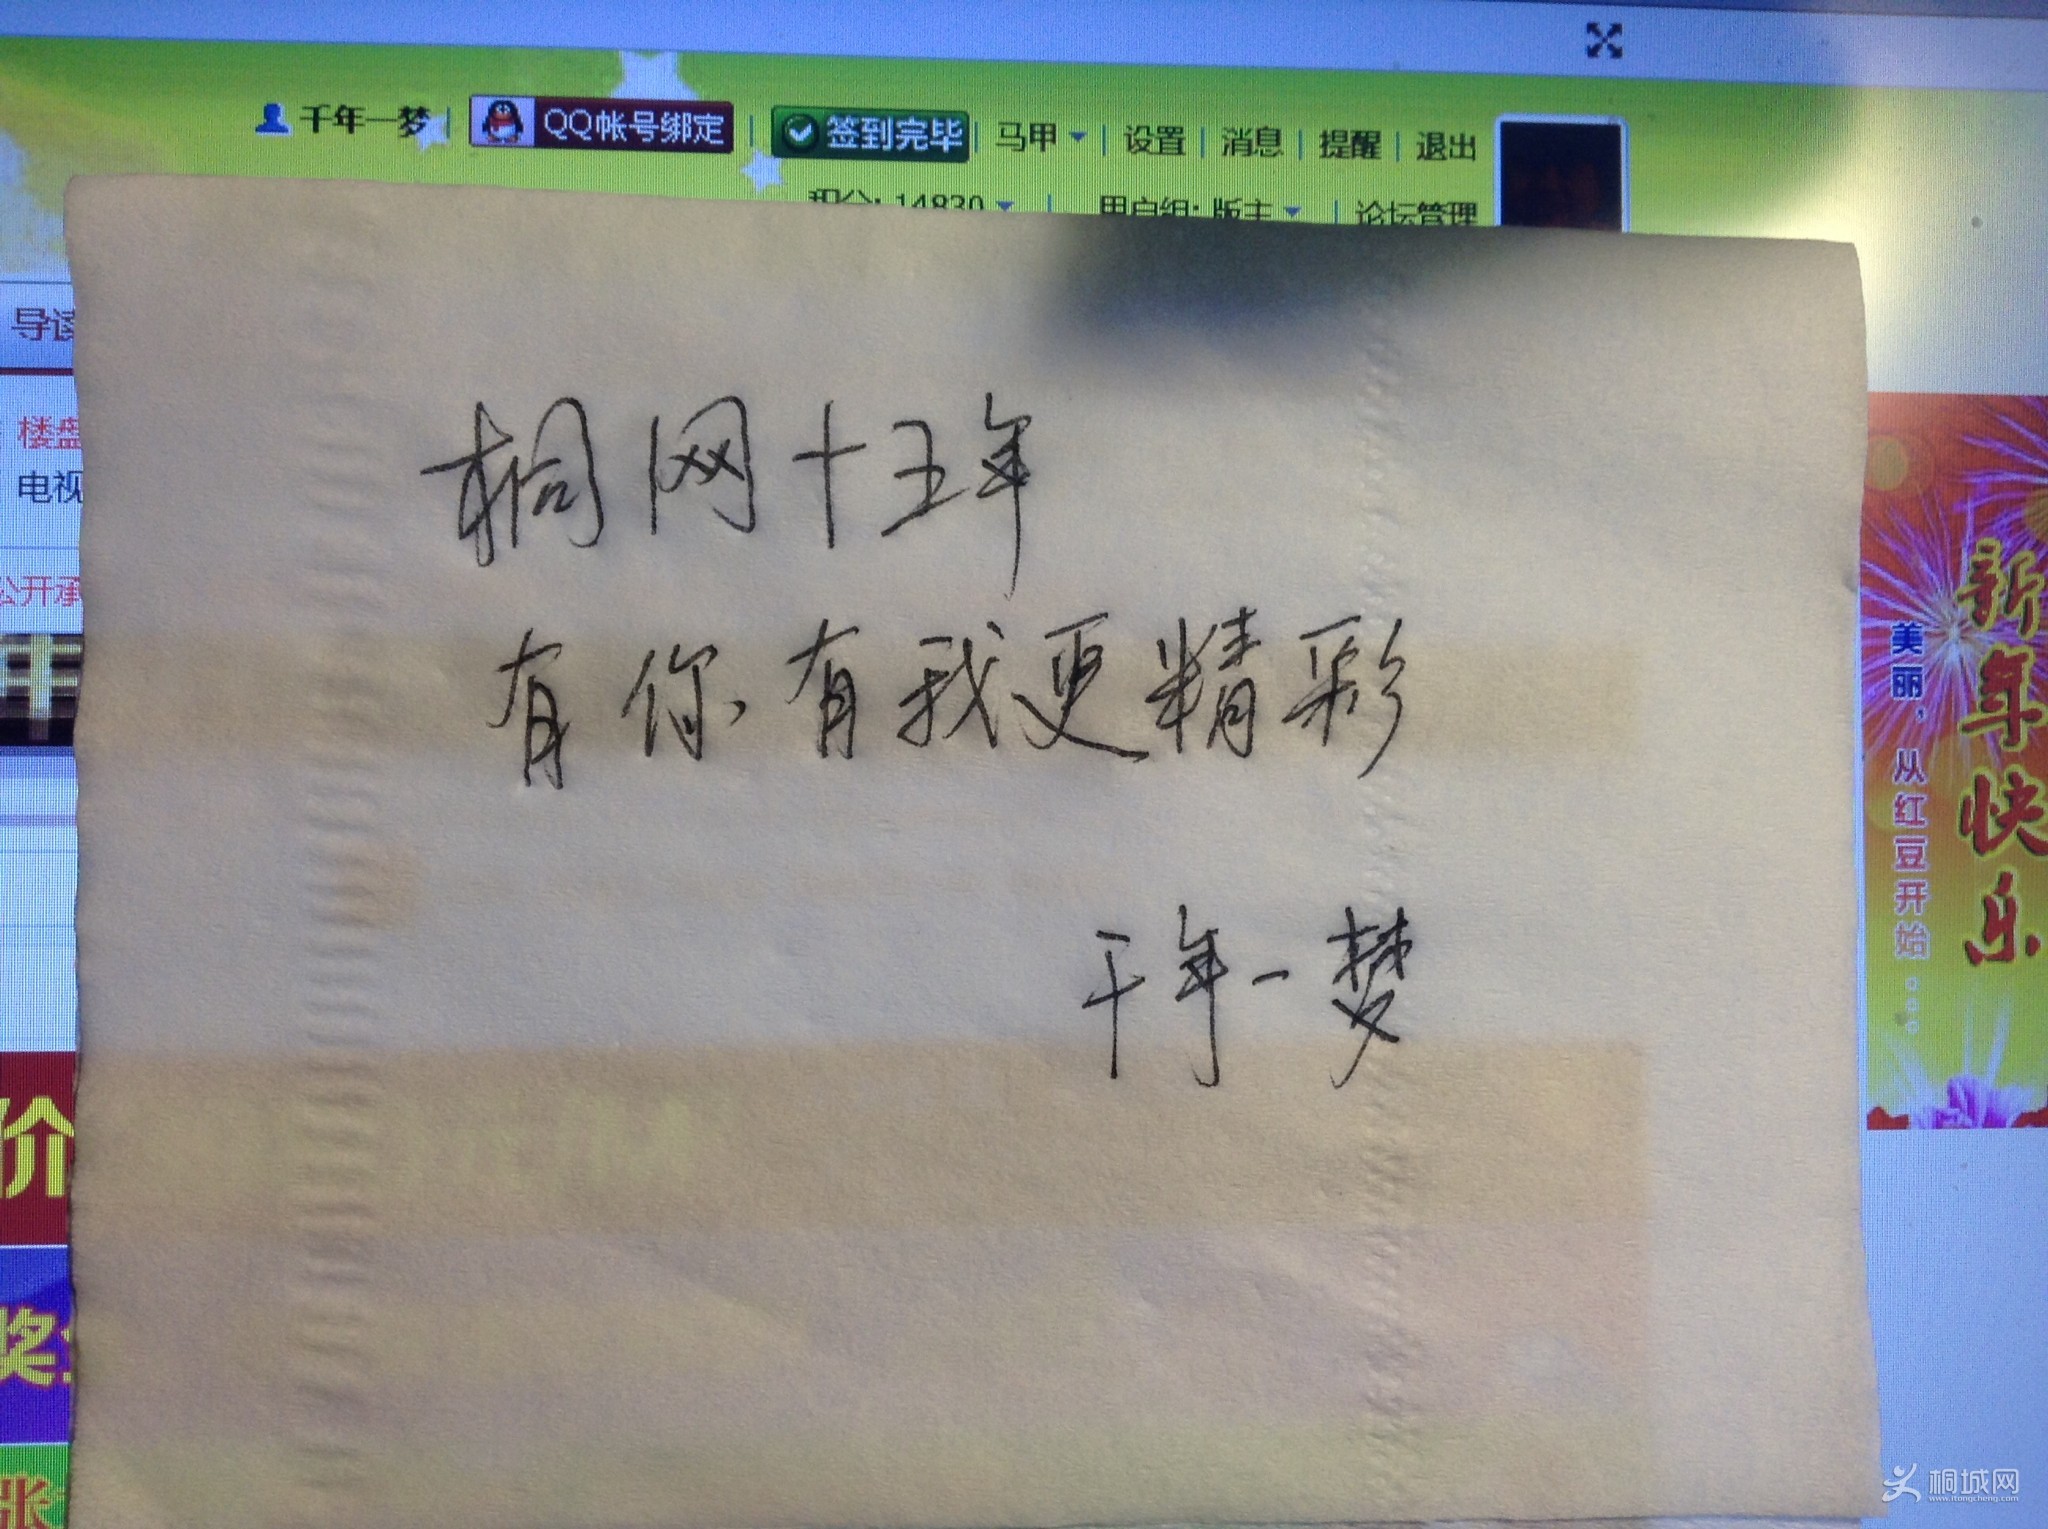 千年一梦
QQ帐号绑定
签到完毕
马甲
设置
消息
提醒
退出
积分: 14830
用户组: 版主
论坛管理
导读
楼盘
电视
公开承
桐网十五年
有你有我更精彩
千年一梦
新年快乐
美丽，从红豆开始...
价
奖
张
桐城网
www.itongcheng.com